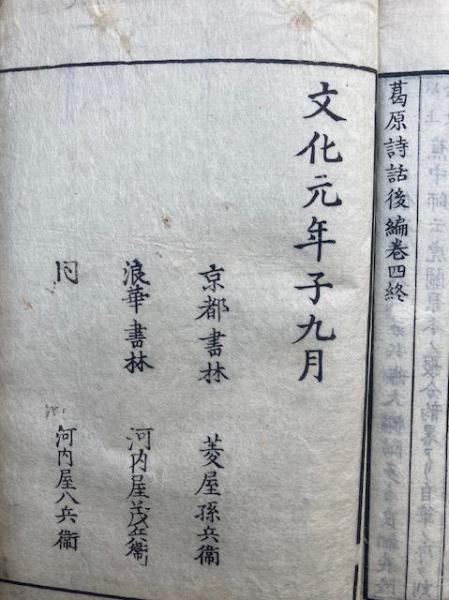 葛原詩話後編卷四終
文化元年子九月
京都書林 菱屋孫兵衞
浪華書林 河内屋茂兵衞
同 河内屋八兵衞